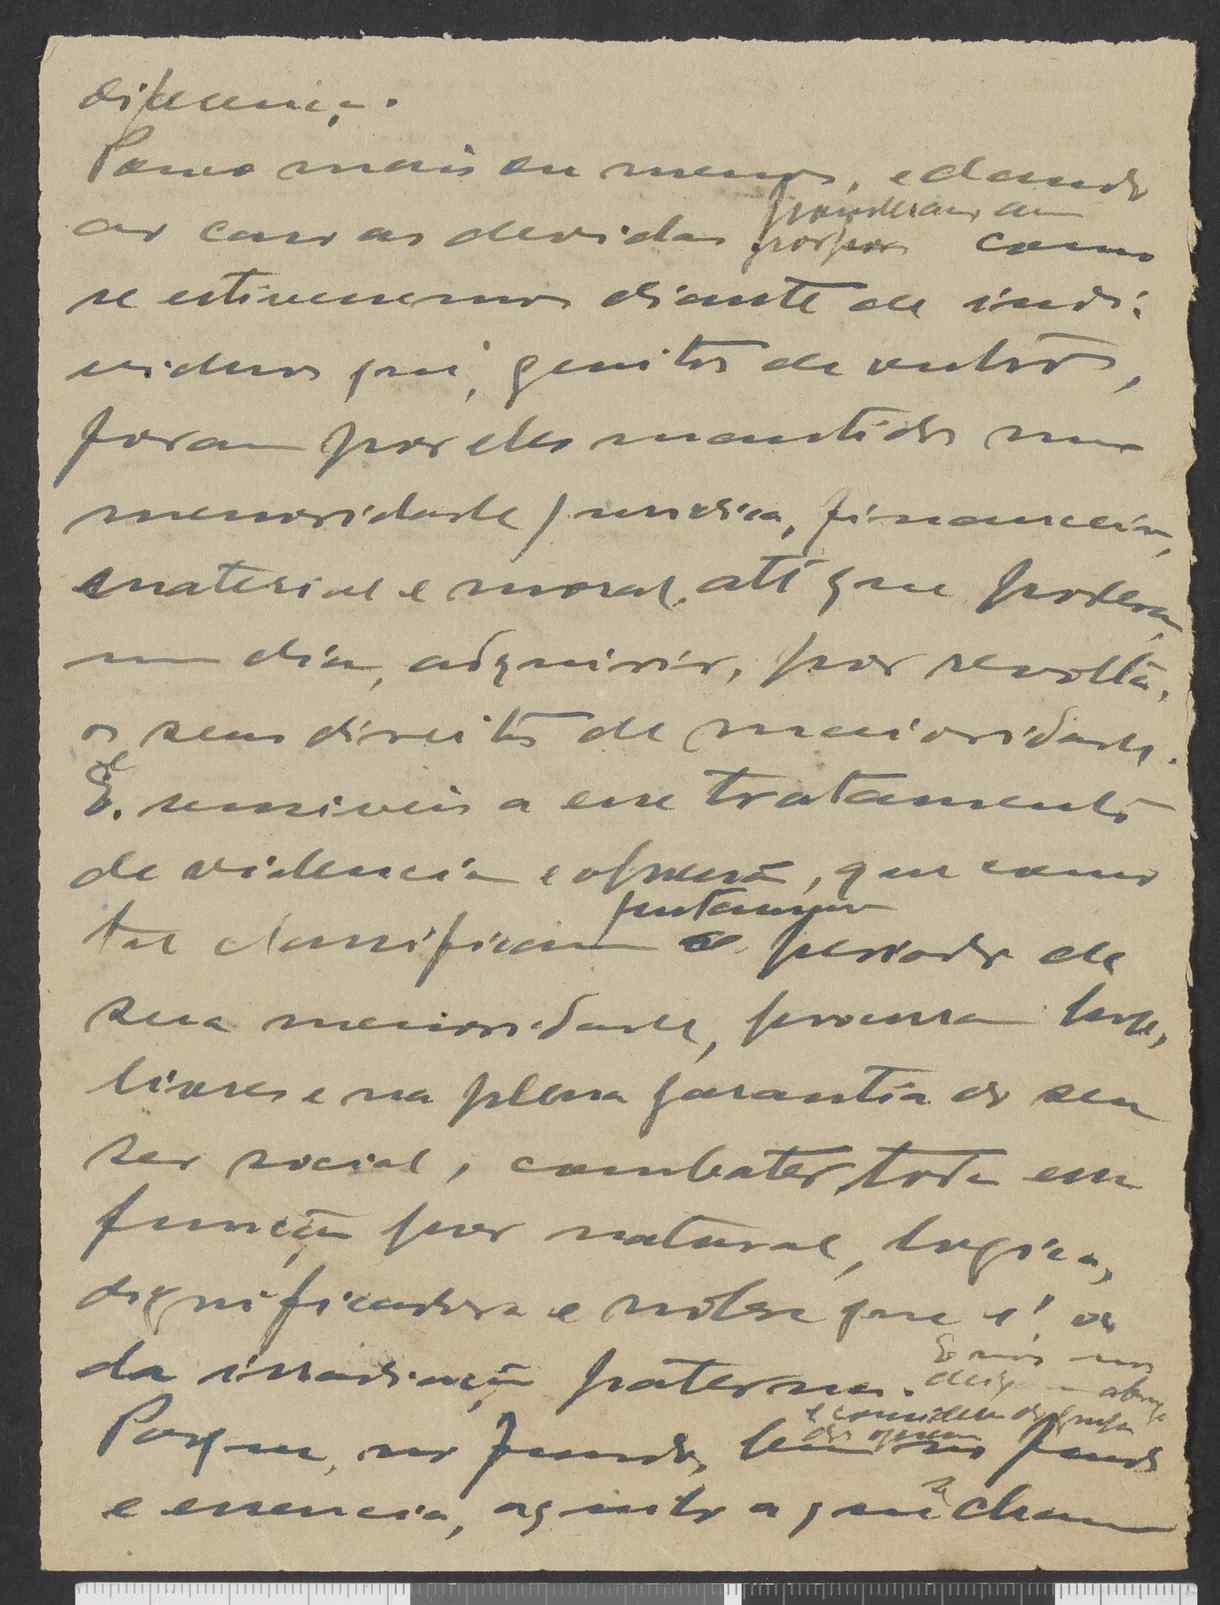 diferença.
Pouco mais ou menos, e dando
as cousas as devidas proporções como
se estivessemos diante de indi-
viduos que, genitos de outros,
foram por eles mantidos numa
menoridade juridica, financeira,
material e moral, até que poderam,
um dia, adquirir, por revolta,
os seus direitos de maioridade.
E, sensiveis a esse tratamento
de violencia e opressão, que como
tal classificam o periodo de
sua menoridade, procuram hoje,
livres e na plena garantia do seu
ser social, combater toda essa
função por natural, logica,
dignificadora e nobre que é, a
da irradiação paterna. E nós nos
Porque, no fundo, bem no fundo
e essencia, aquilo a que chamam